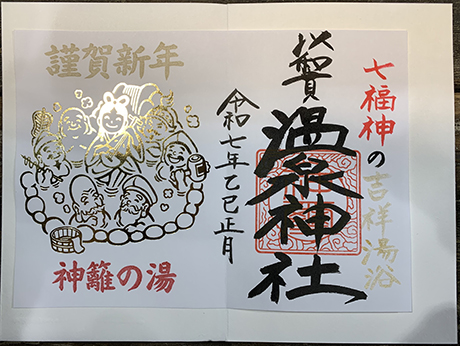 七福神の吉祥湯浴
温泉神社
令和七年乙巳正月
謹賀新年
神籬の湯